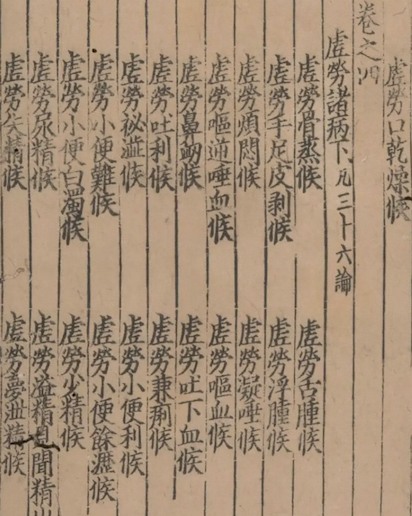 虛勞口乾燥候
卷之四
虛勞諸病下凡三十六論
虛勞骨蒸候　虛勞舌腫候
虛勞手足皮剝候　虛勞浮腫候
虛勞煩悶候　虛勞凝唾候
虛勞嘔逆唾血候　虛勞嘔血候
虛勞鼻衂候　虛勞吐下血候
虛勞吐利候　虛勞兼痢候
虛勞祕澁候　虛勞小便利候
虛勞小便難候　虛勞小便餘瀝候
虛勞小便白濁候　虛勞少精候
虛勞尿精候　虛勞溢精見聞精
虛勞失精候　虛勞夢泄精候